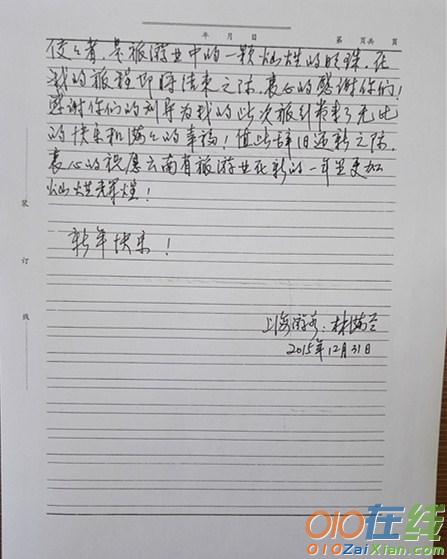 年 月 日 第 页共 页
佼者,是旅游业中的一颗灿烂的明珠,在
我的旅程即将结束之际,衷心的感谢你们!
感谢你们的创导为我的此次旅行带来了无比
的快乐和满满的幸福!值此辞旧迎新之际,
衷心的祝愿云南省旅游业在新的一年里更加
灿烂辉煌!
新年快乐!
上海游客:林满兰
2015年12月31日
装
订
线
010在线
010ZaiXian.com